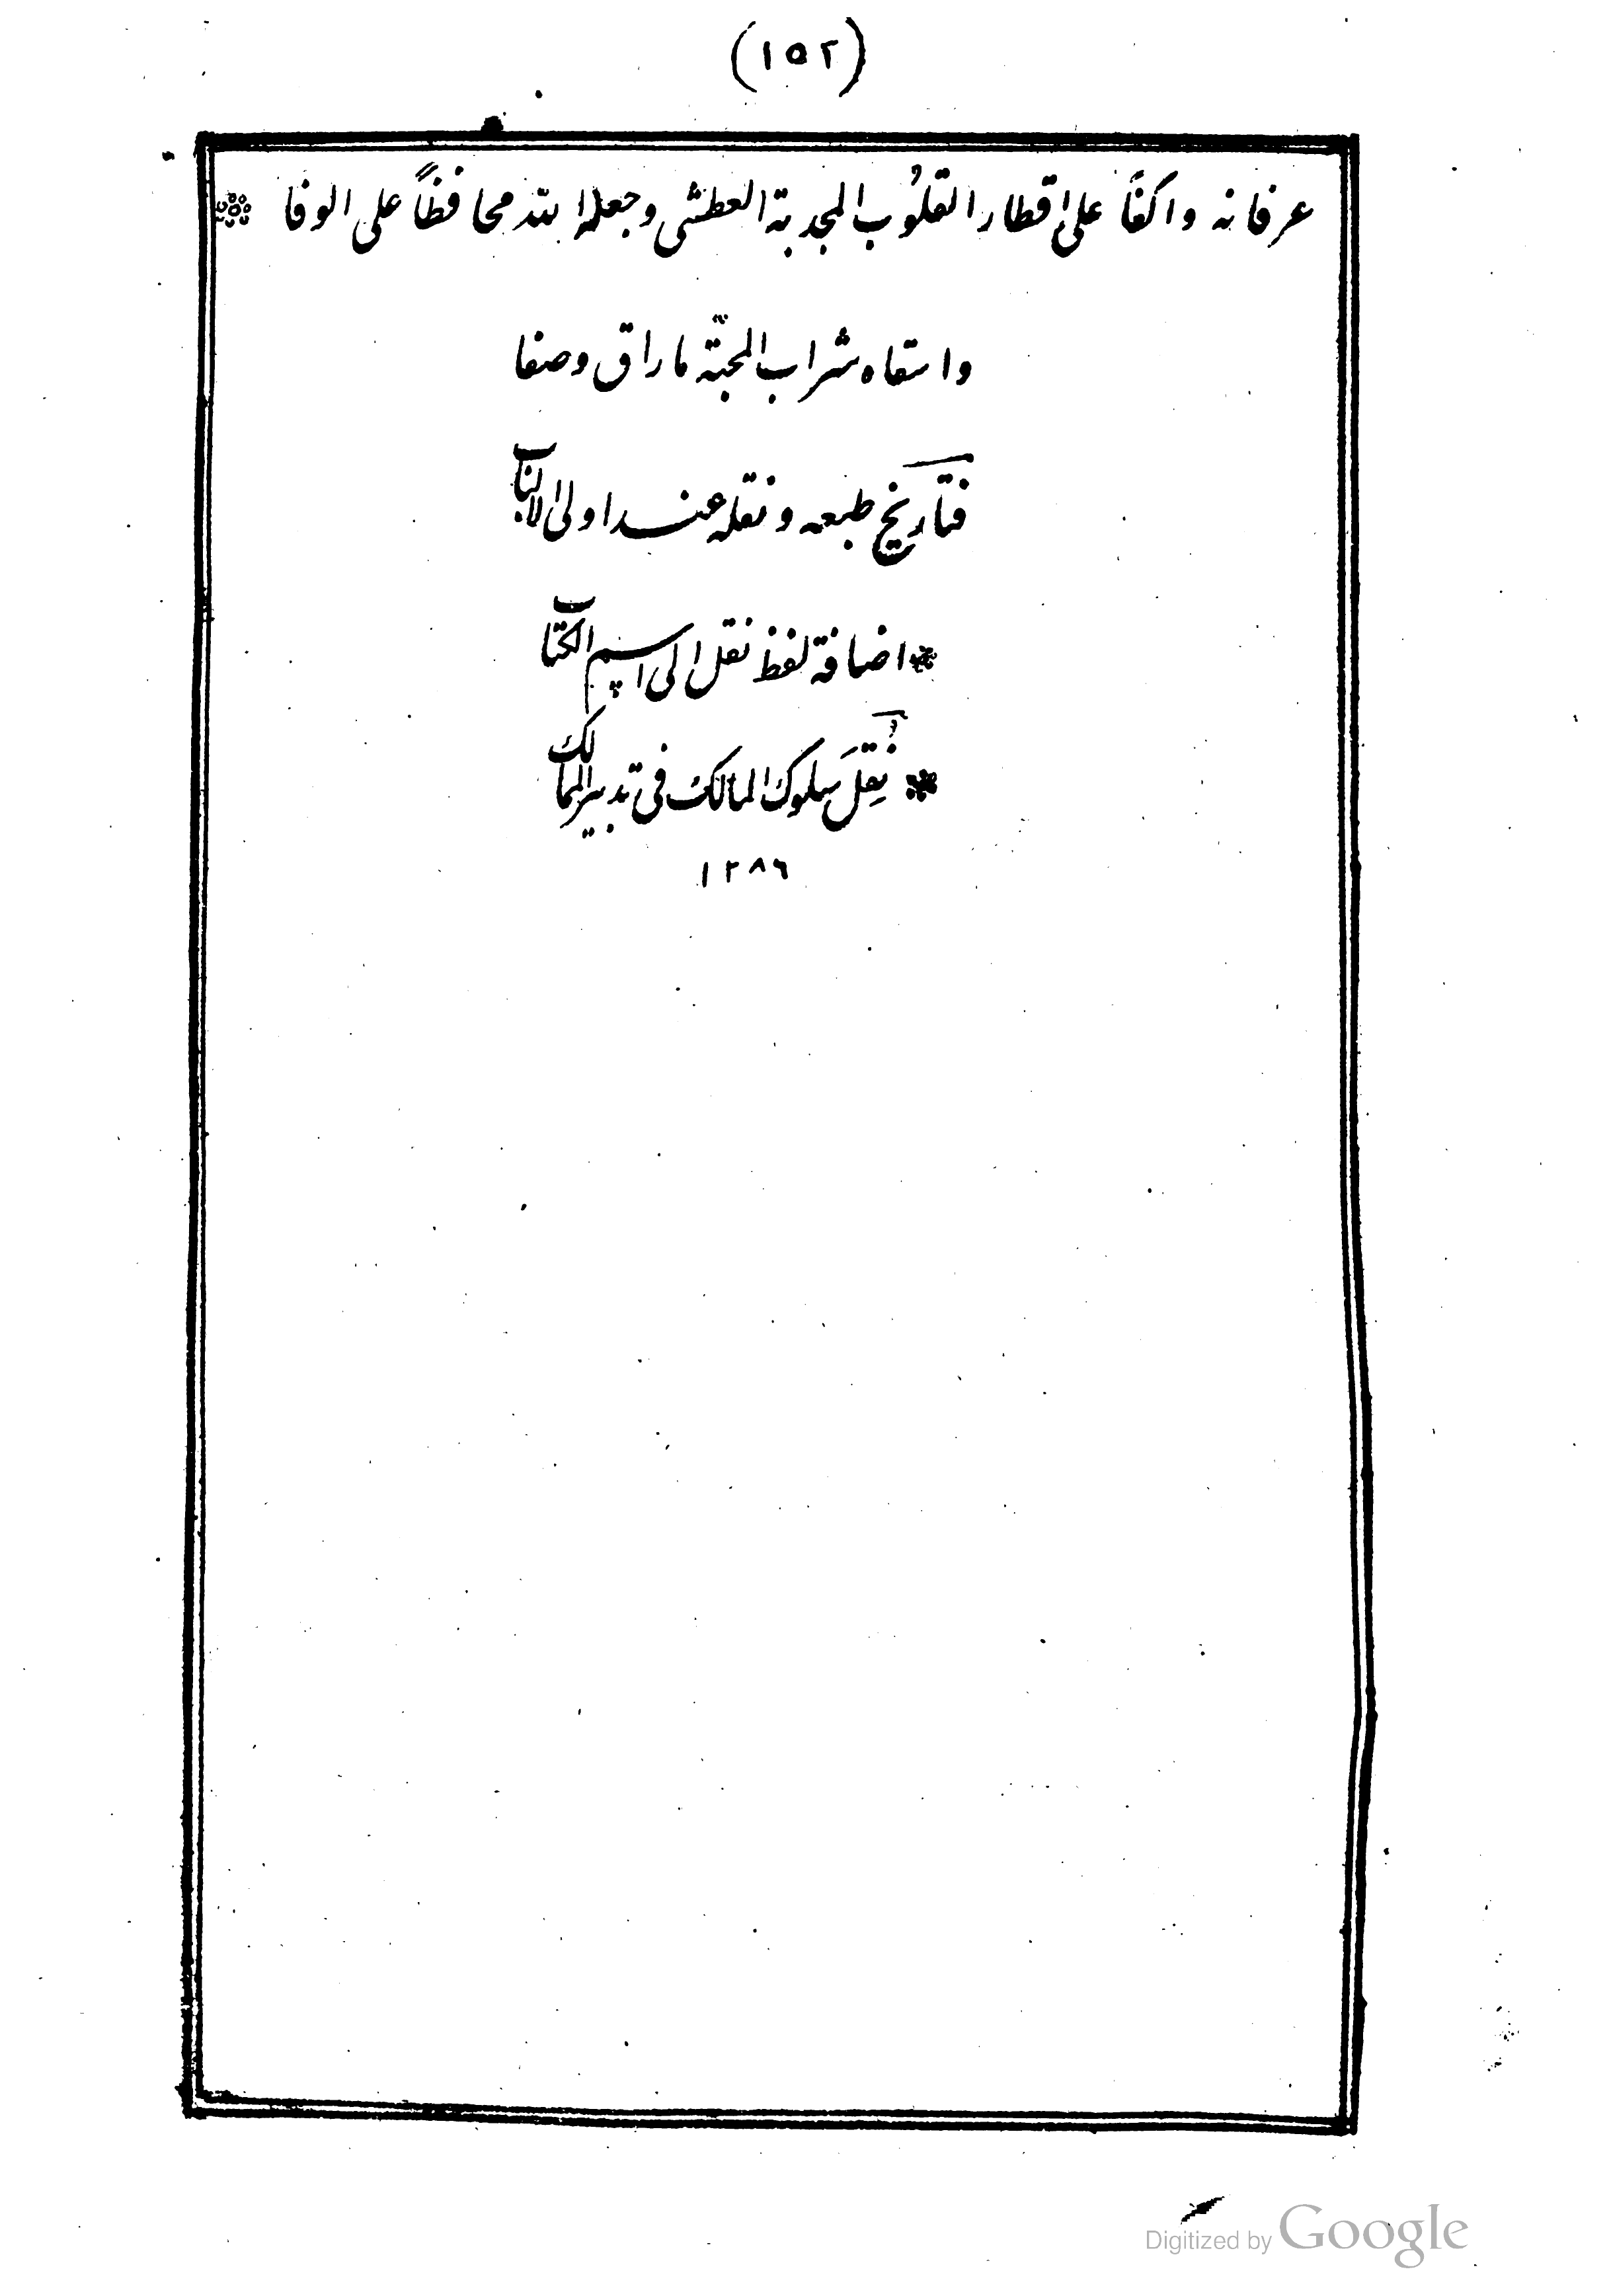 (١٥٢)
عرفانه واكفًا على اقطار القلُوب المجدبة العطشى وجعله الله محافظاً على الوفا
واسقاه شراب المحبّة ما راق وصفا
فتاريخ طبعه ونقله عند اولى الالباب
اضافة لفظ نقل الى اسم الكتاب
نُقِلَ سلوك المالك فى تدبير الممالك
١٢٨٦
Digitized by Google